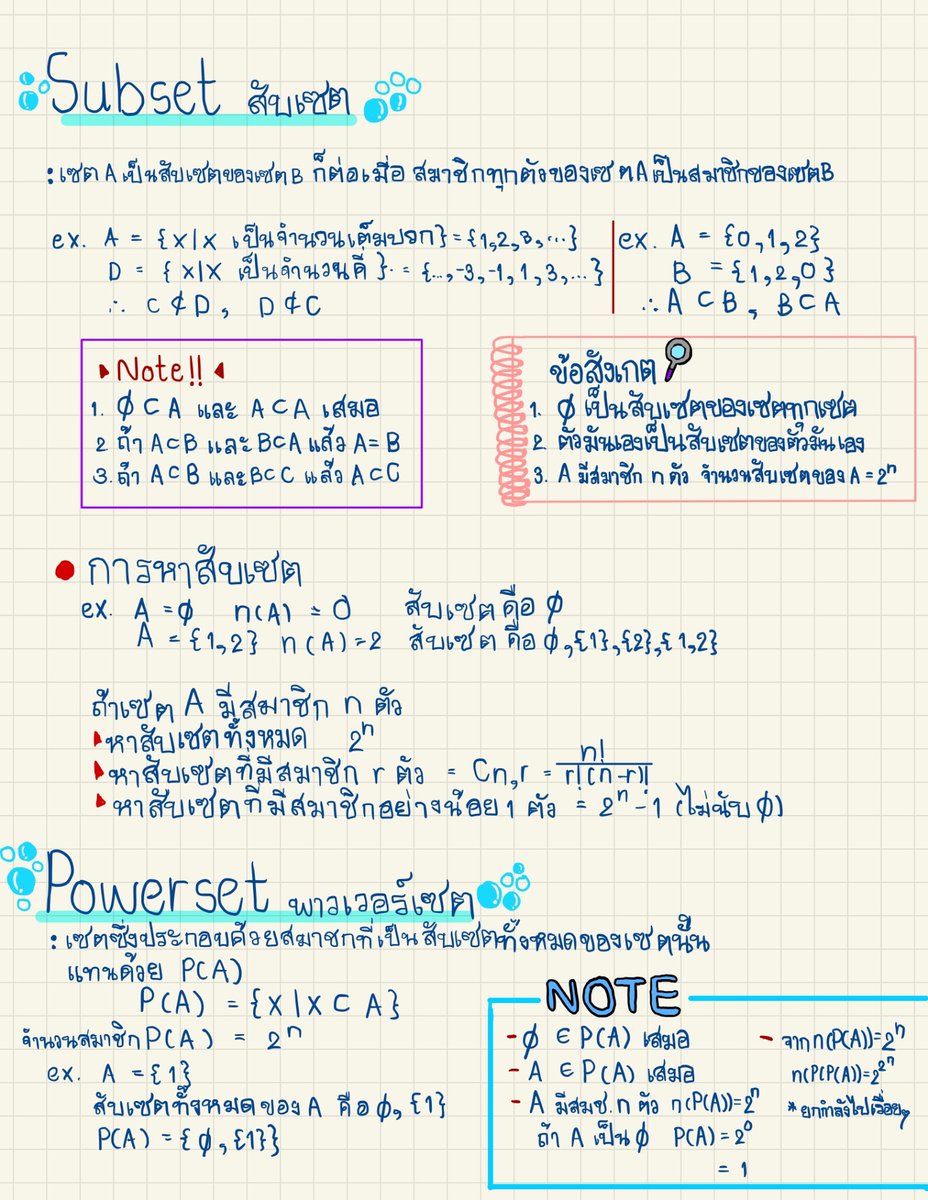 Subset สับเซต
: เซต A เป็นสับเซตของเซต B ก็ต่อเมื่อ สมาชิกทุกตัวของเซตAเป็นสมาชิกของเซตB
ex. A = {x|x เป็นจำนวนเต็มบวก} = {1,2,3,...}
D = {x|x เป็นจำนวนคี่} = {...,-3,-1,1,3,...}
∴ C ⊄ D, D ⊄ C
ex. A = {0,1,2}
B = {1,2,0}
∴ A ⊂ B, B ⊂ A
Note!!
1. ∅ ⊂ A และ A ⊂ A เสมอ
2 ถ้า A⊂B และ B⊂A แล้ว A=B
3. ถ้า A⊂B และ B⊂C แล้ว A⊂C
ข้อสังเกต
1. ∅ เป็นสับเซตของเซตทุกเซต
2. ตัวมันเองเป็นสับเซตของตัวมันเอง
3. A มีสมาชิก n ตัว จำนวนสับเซตของ A = 2ⁿ
• การหาสับเซต
ex. A = ∅ n(A) = 0 สับเซตคือ ∅
A = {1,2} n(A) = 2 สับเซต คือ ∅,{1},{2},{1,2}
ถ้าเซต A มีสมาชิก n ตัว
หาสับเซตทั้งหมด 2ⁿ
หาสับเซตที่มีสมาชิก r ตัว = Cn,r = n!/r!(n-r)!
หาสับเซตที่มีสมาชิกอย่างน้อย 1 ตัว = 2ⁿ - 1 (ไม่นับ ∅)
Powerset พาวเวอร์เซต
: เซตซึ่งประกอบด้วยสมาชกที่เป็นสับเซตทั้งหมดของเซตนั้น
แทนด้วย P(A)
P(A) = {x|x ⊂ A}
จำนวนสมาชิก P(A) = 2ⁿ
ex. A = {1}
สับเซตทั้งหมดของ A คือ ∅, {1}
P(A) = {∅, {1}}
NOTE
- ∅ ∈ P(A) เสมอ
- A ∈ P(A) เสมอ
- A มีสมช. n ตัว n(P(A))=2ⁿ
ถ้า A เป็น ∅ P(A) = 2⁰
= 1
- จาก n(P(A))=2ⁿ
n(P(P(A))=2^2ⁿ
*ยกกำลังไปเรื่อยๆ